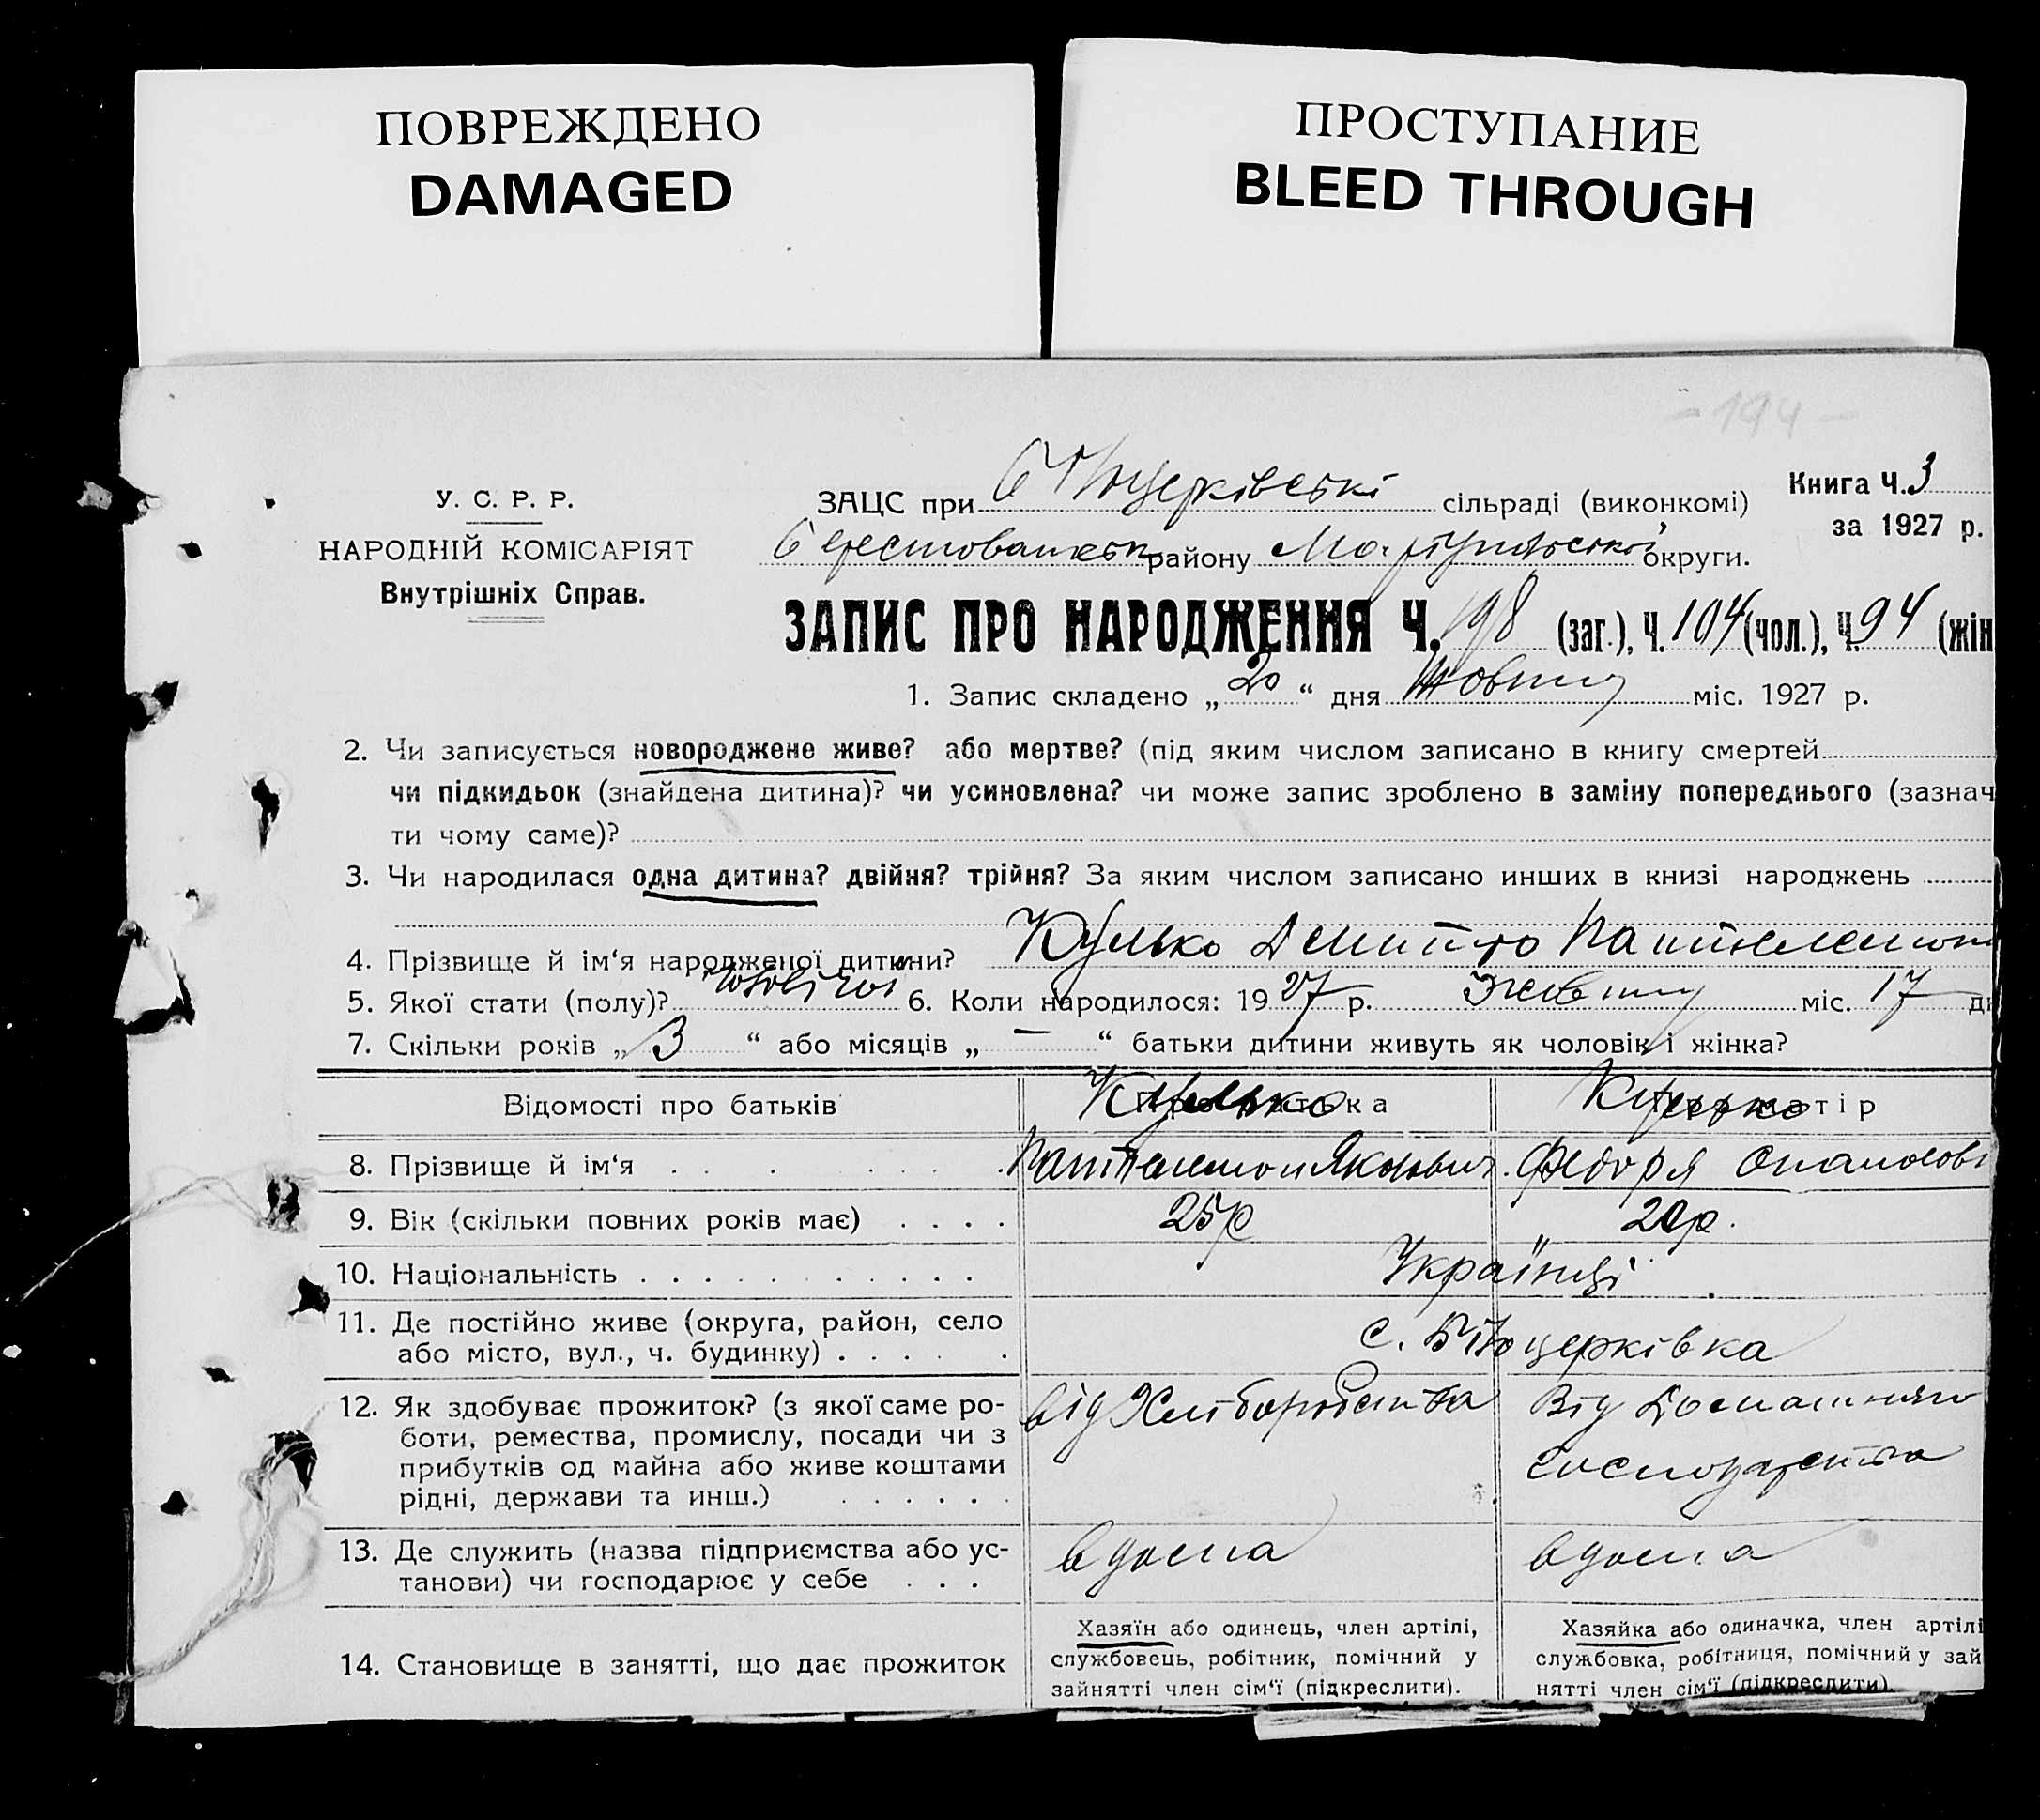 ПОВРЕЖДЕНО
DAMAGED
ПРОСТУПАНИЕ
BLEED THROUGH
- 194 -
У. С. Р. Р.
НАРОДНІЙ КОМІСАРІЯТ
Внутрішніх Справ.
ЗАЦС при Білоцерківські сільраді (виконкомі)
Книга Ч. 3
за 1927 р.
району Маріупольської округи.
ЗАПИС ПРО НАРОДЖЕННЯ Ч. 198 (заг.), Ч. 104 (чол.), Ч. 94 (жін
1. Запис складено „ 20 “ дня Жовтня міс. 1927 р.
2. Чи записується новороджене живе? або мертве? (під яким числом записано в книгу смертей
чи підкидьок (знайдена дитина)? чи усиновлена? чи може запис зроблено в заміну попереднього (зазнач
ти чому саме)?
3. Чи народилася одна дитина? двійня? трійня? За яким числом записано инших в книзі народжень
4. Прізвище й ім‘я народженої дитини? Кулько Дмитро
5. Якої стати (полу)? 6. Коли народилося: 1927 р. Жовтня міс. 17 д
7. Скільки років „ 3 “ або місяців „ — “ батьки дитини живуть як чоловік і жінка?
Відомості про батьків
Кулько
Про батька
Кулько
Про матір
8. Прізвище й ім‘я . . . . . . . Пантелемон Якович. Федора
9. Вік (скільки повних років має) . . . . 25р 20р.
10. Національність . . . . . . . . . . . Українці
11. Де постійно живе (округа, район, село
або місто, вул., ч. будинку) . . . . . с. Білоцерківка
12. Як здобуває прожиток? (з якої саме ро-
боти, ремества, промислу, посади чи з
прибутків од майна або живе коштами
рідні, держави та инш.) . . . . . .
від Хліборобства
Від Домашнього
господарства
13. Де служить (назва підприємства або ус-
танови) чи господарює у себе . . .
вдома
вдома
14. Становище в занятті, що дає прожиток
Хазяїн або одинець, член артілі,
службовець, робітник, помічний у
зайнятті член сім‘ї (підкреслити).
Хазяйка або одиначка, член артілі
службовка, робітниця, помічний у зай
нятті член сім‘ї (підкреслити).